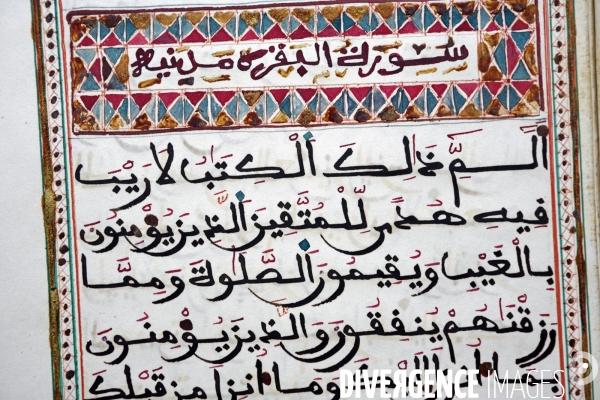 سورة البقرة مدنية
الٓمّٓ ذَٰلِكَ ٱلْكِتَٰبُ لَا رَيْبَ
فِيهِ هُدًى لِّلْمُتَّقِينَ ٱلَّذِينَ يُؤْمِنُونَ
بِالْغَيْبِ وَيُقِيمُونَ ٱلصَّلَوٰةَ وَمِمَّا
رَزَقْنَٰهُمْ يُنفِقُونَ وَالَّذِينَ يُؤْمِنُونَ
بِمَا أُنزِلَ إِلَيْكَ وَمَا أُنزِلَ مِن قَبْلِكَ
DIVERGENCE IMAGES